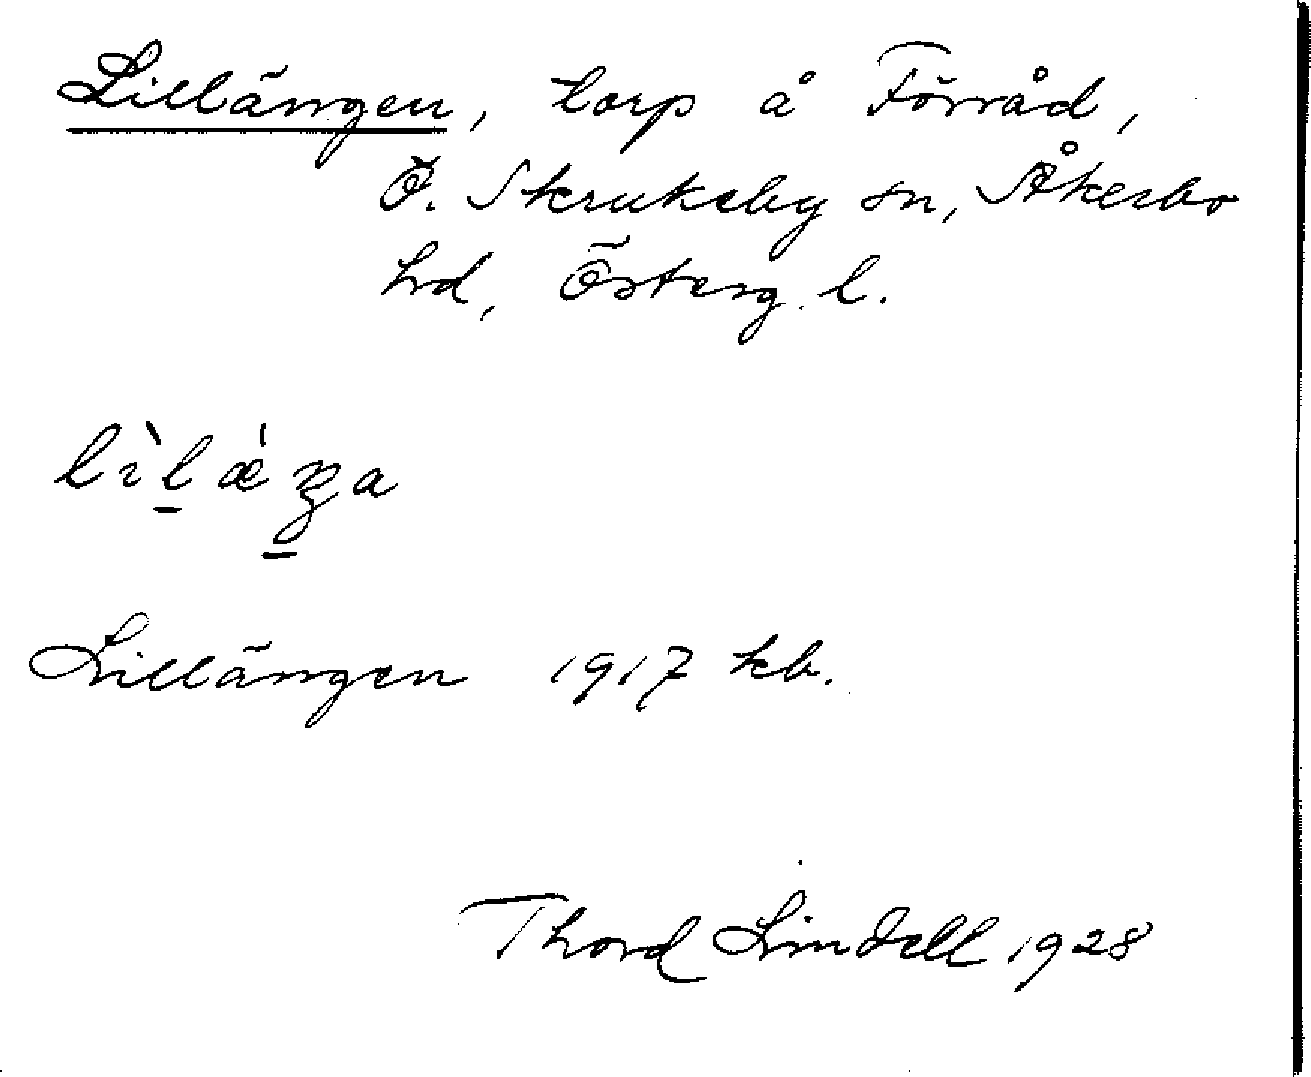 Lillängen, torp å Förråd,
Ö. Skrukeby sn, Åkerbo
hd, Österg. l.
Lillängen 1917 kb.
Thord Lindell 1928